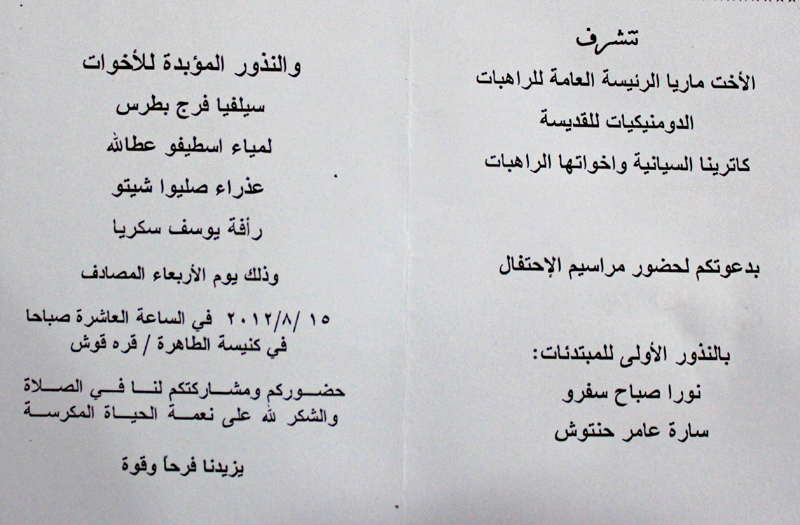 تتشرف
الأخت ماريا الرئيسة العامة للراهبات
الدومنيكيات للقديسة
كاترينا السيانية واخواتها الراهبات
بدعوتكم لحضور مراسيم الإحتفال
بالنذور الأولى للمبتدئات:
نورا صباح سفرو
سارة عامر حنتوش
والنذور المؤبدة للأخوات
سيلفيا فرج بطرس
لمياء اسطيفو عطالله
عذراء صليوا شيتو
رأفة يوسف سكريا
وذلك يوم الأربعاء المصادف
١٥ /٢٠١٢/٨ في الساعة العاشرة صباحا
في كنيسة الطاهرة / قره قوش
حضوركم ومشاركتكم لنا في الصلاة
والشكر لله على نعمة الحياة المكرسة
يزيدنا فرحاً وقوة